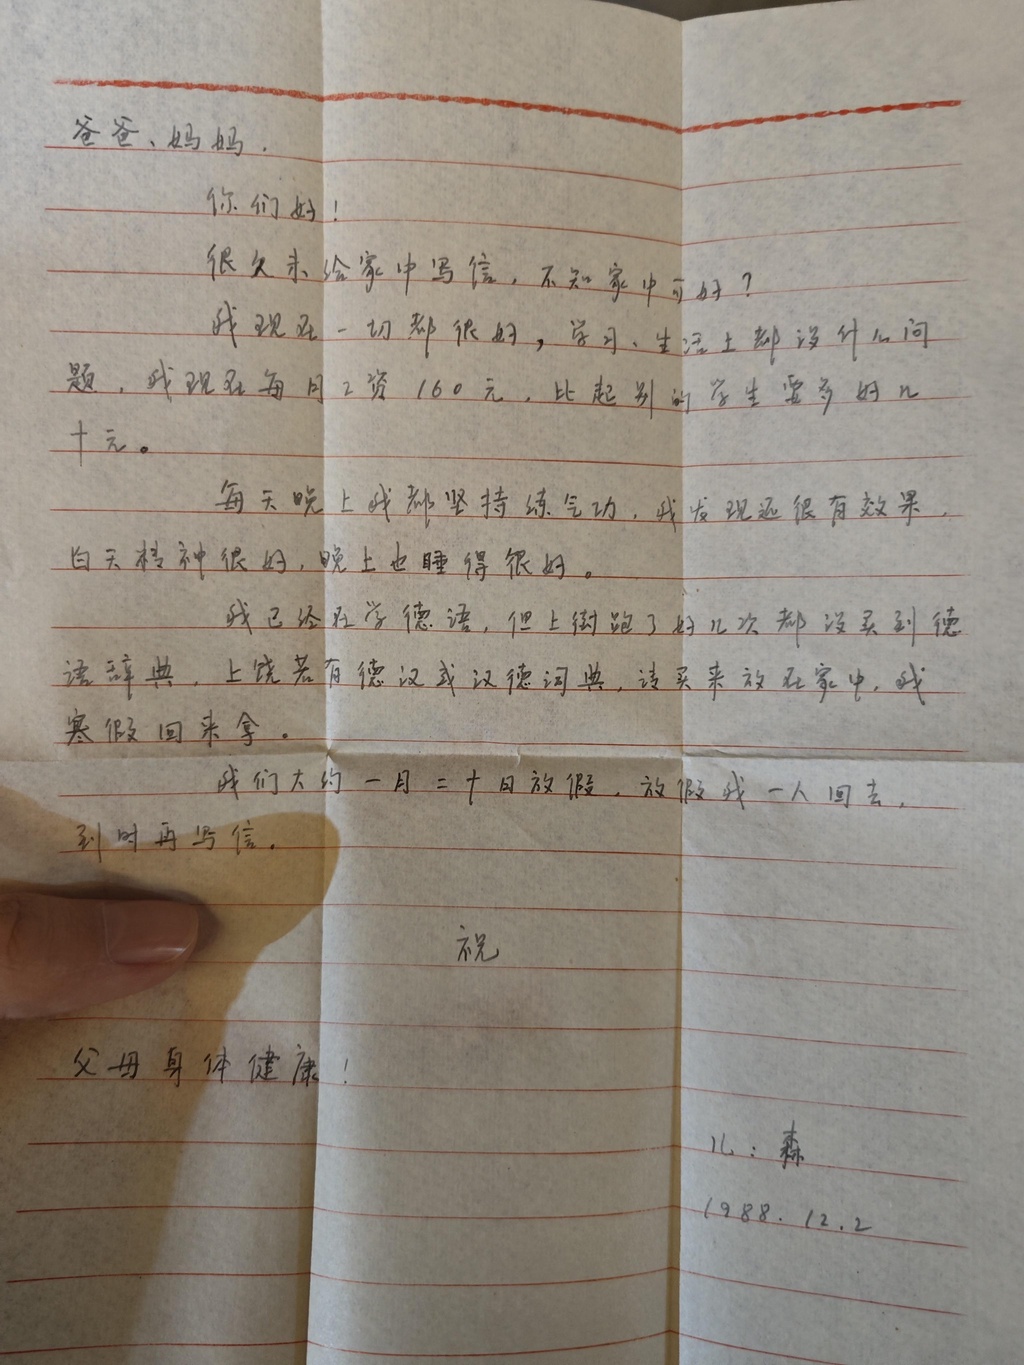 爸爸、妈妈.
你们好！
很久未给家中写信，不知家中可好？
我现在一切都很好，学习、生活上都没什么问
题，我现在每月工资160元，比起别的学生要多好几
十元。
每天晚上我都坚持练气功，我发现还很有效果，
白天精神很好，晚上也睡得很好。
我已经在学德语，但上街跑了好几次都没买到德
语辞典，上饶若有德汉或汉德词典，请买来放在家中，我
寒假回来拿。
我们大约一月二十日放假，放假我一人回去，
到时再写信。
祝
父母身体健康！
儿：森
1988.12.2